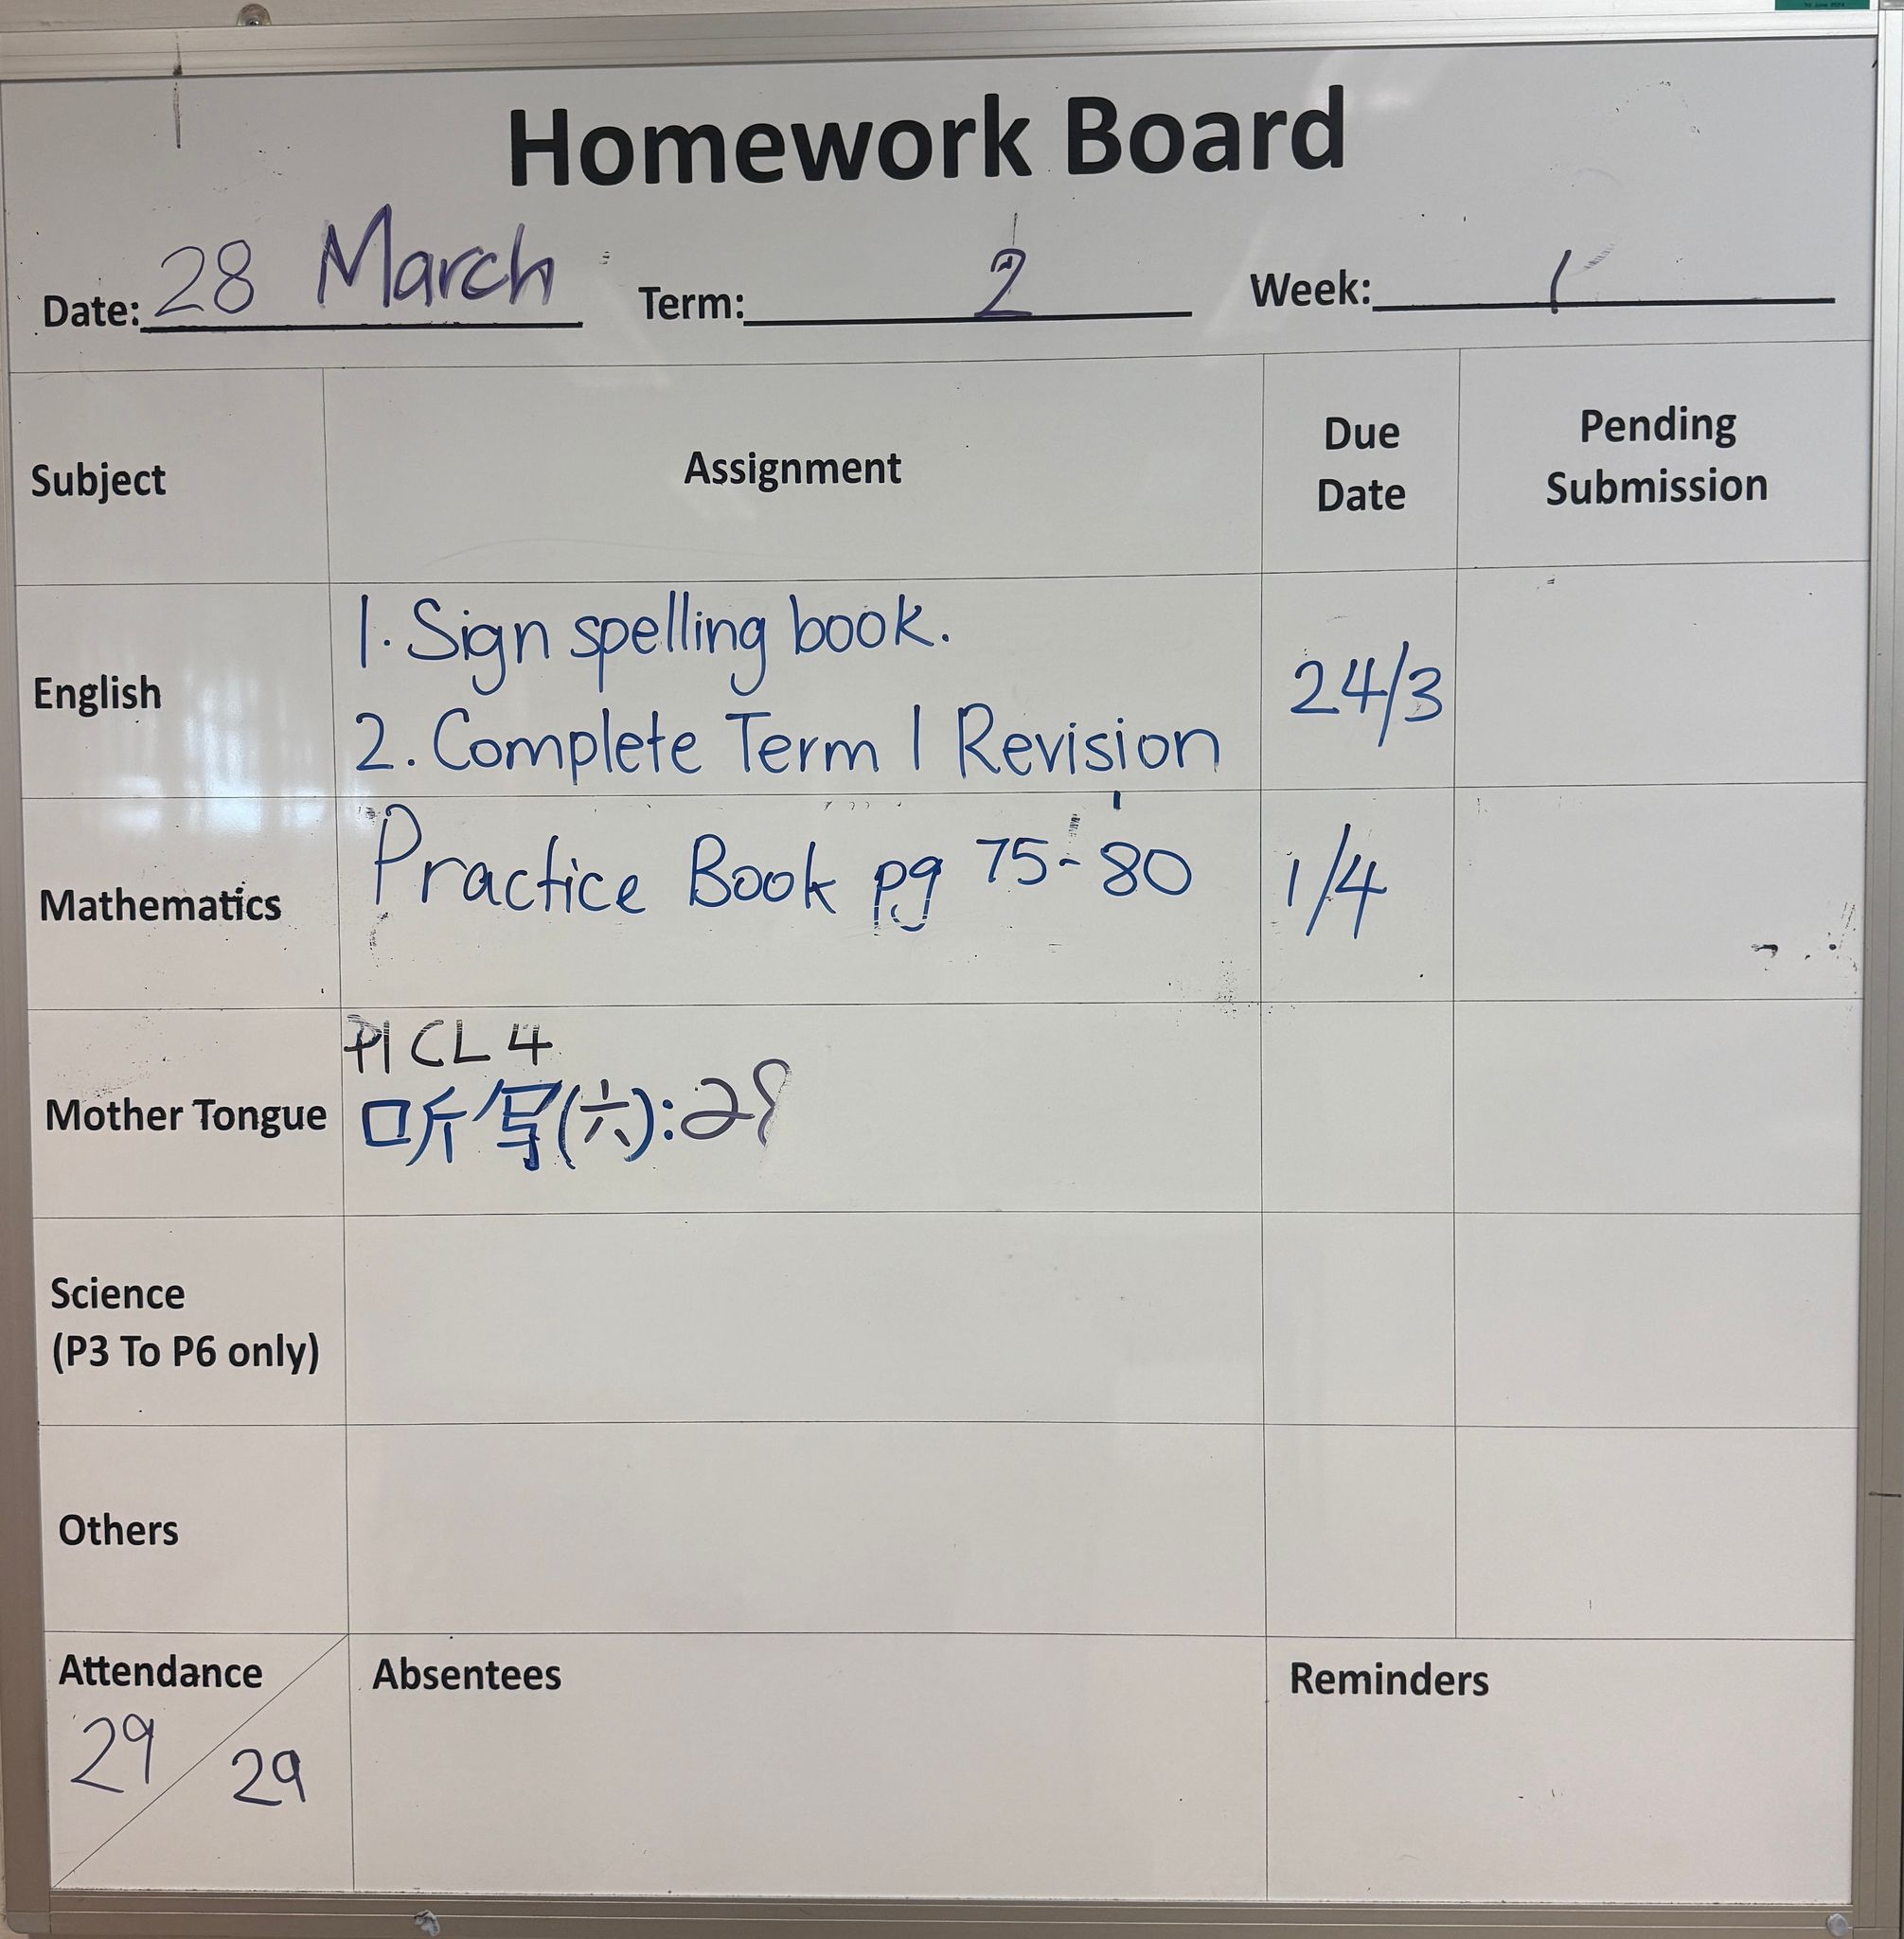 Homework Board
Date: 28 March Term: 2 Week: 1
Subject Assignment Due Date Pending Submission
English
1. Sign spelling book.
2. Complete Term 1 Revision
24/3
Mathematics Practice Book pg 75-80 1/4
Mother Tongue
P1 CL 4
听写(六):28
Science
(P3 To P6 only)
Others
Attendance Absentees Reminders
29 29